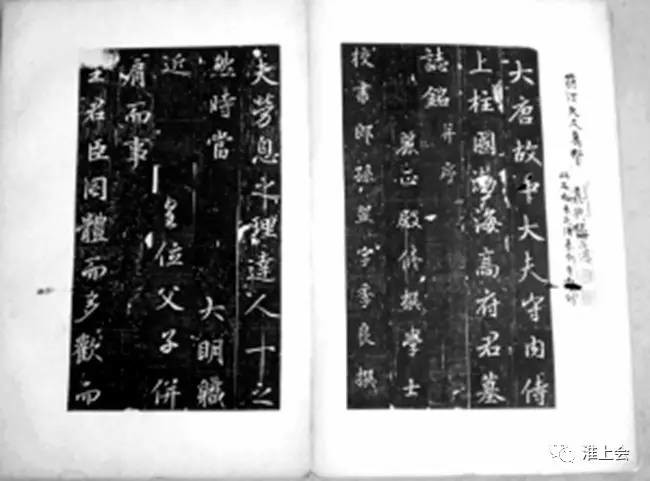 大唐故中大夫守内侍
上柱國渤海高府君墓
誌銘 并序
麗正殿修撰學士
校書郎孫翌字季良撰
夫勞息之理達人十之
然時當 大明職
近 位父子併
肩而事
主君臣同體而多歡而
淮上会